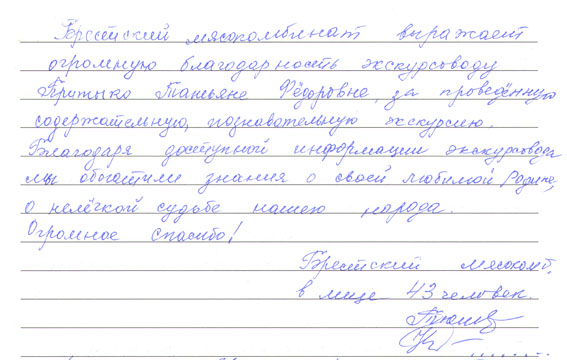 Брестский мясокомбинат выражает
огромную благодарность экскурсоводу
Притыко Татьяне Фёдоровне, за проведённую
содержательную, познавательную экскурсию.
Благодаря доступной информации экскурсовода
мы обогатили знания о своей любимой Родине,
о нелёгкой судьбе нашего народа.
Огромное спасибо!
Брестский мясокомб.
в лице 43 человек.